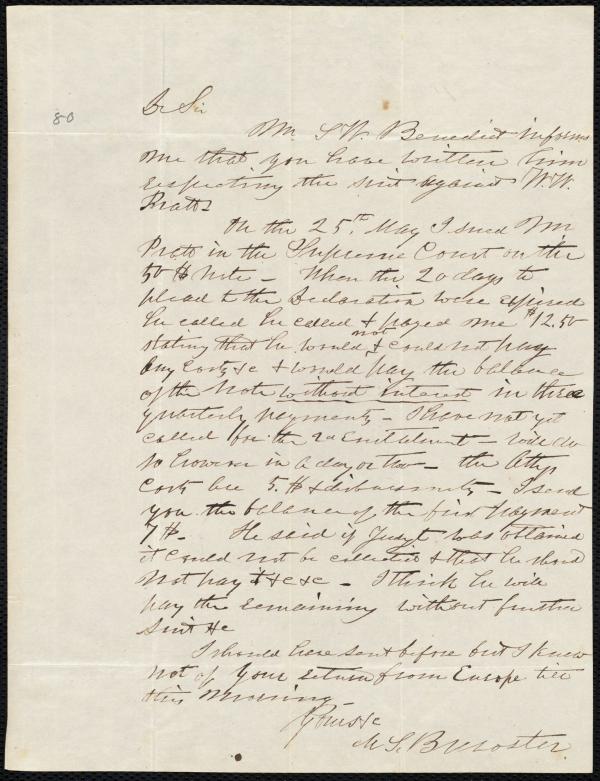 80
Dr Sir
Mr. S W. Benedict informs
me that you have written him
respecting the suit against W. W.
Pratt.
On the 25th May I sued Wm
Pratt in the Supreme Court on the
50 $ Note – When the 20 days to
plead to the Declaration were expired
he called he called & payed me $12.50
stating that he would not & could not pay
any costs &c & would pay the balance
of the Note without interest in three
quarterly payments – I have not yet
called for the 2d Enstalment – will do
so however in a day or two – the Attys
costs are 5.$ & disbursements – I send
you the balance of the first payment
7 $ – He said if Judgt was obtained
it could not be collected & that he should
not pay it &c &c – I think he will
pay the remaining without further
suit &c
I should have sent before but I knew
not of your return from Europe till
this Morning
Yours &c
M S. Brewster.